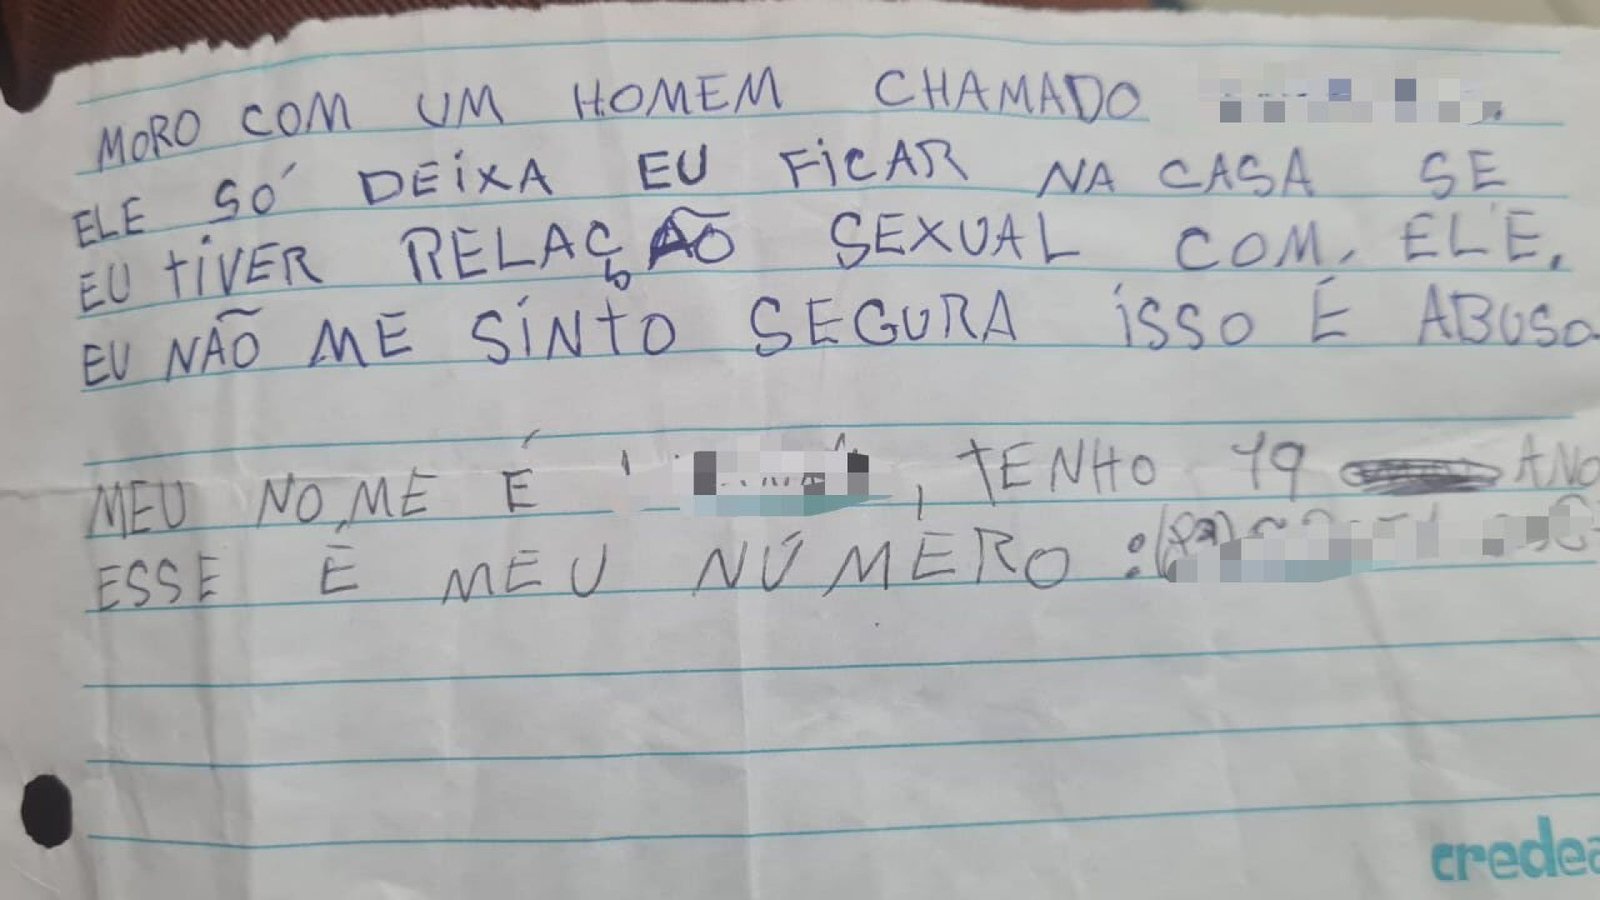 MORO COM UM HOMEM CHAMADO
ELE SÓ DEIXA EU FICAR NA CASA SE
EU TIVER RELAÇÃO SEXUAL COM ELE.
EU NÃO ME SINTO SEGURA ISSO É ABUSO
MEU NOME É , TENHO 19 ANO
ESSE É MEU NÚMERO :
credea